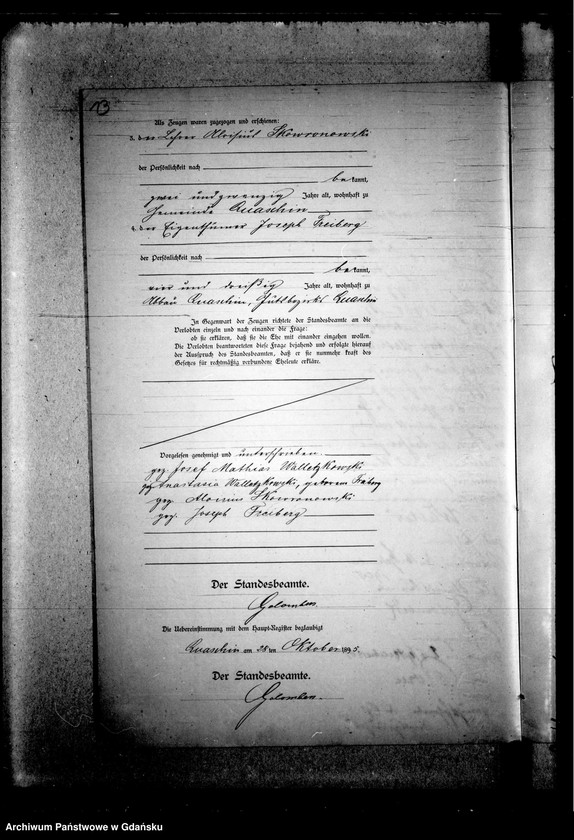 13
Als Zeugen waren zugezogen und erschienen:
3. der Lehrer Aloisius Skowronowski
der Persönlichkeit nach
bekannt,
zwei und zwanzig Jahre alt, wohnhaft zu
Gemeinde Quaschin
4. der Eigenthümer Joseph Freiberg
der Persönlichkeit nach
bekannt,
vier und dreißig Jahre alt, wohnhaft zu
Abbau Quaschin, Gutsbezirks Quaschin
In Gegenwart der Zeugen richtete der Standesbeamte an die
Verlobten einzeln und nach einander die Frage:
ob sie erklären, daß sie die Ehe mit einander eingehen wollen.
Die Verlobten beantworteten diese Frage bejahend und erfolgte hierauf
der Ausspruch des Standesbeamten, daß er sie nunmehr kraft des
Gesetzes für rechtmäßig verbundene Eheleute erkläre.
Vorgelesen genehmigt und unterschrieben
gez. Josef Mathias Walletzkowski
gez. Anastasia Walletzkowski, geborene Freiberg
gez. Aloisius Skowronowski
gez. Joseph Freiberg
Der Standesbeamte.
Die Uebereinstimmung mit dem Haupt-Register beglaubigt
Quaschin am 28 ten Oktober 1895.
Der Standesbeamte.
Archiwum Państwowe w Gdańsku